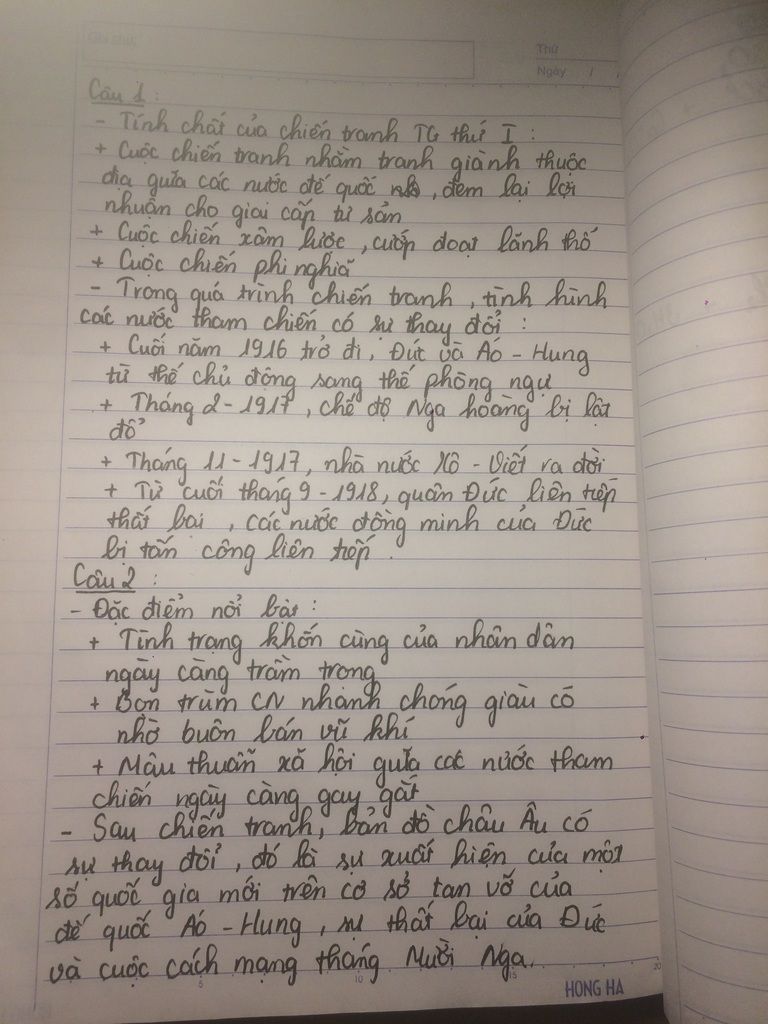 Ghi chú:
Thứ
Ngày /
Câu 1 :
- Tính chất của chiến tranh TG thứ I :
+ Cuộc chiến tranh nhằm tranh giành thuộc
địa giữa các nước đế quốc , đem lại lợi
nhuận cho giai cấp tư sản
+ Cuộc chiến xâm lược , cướp đoạt lãnh thổ
+ Cuộc chiến phi nghĩa
- Trong quá trình chiến tranh , tình hình
các nước tham chiến có sự thay đổi :
+ Cuối năm 1916 trở đi, Đức và Áo - Hung
từ thế chủ động sang thế phòng ngự
+ Tháng 2 - 1917 , chế độ Nga hoàng bị lật
đổ
+ Tháng 11 - 1917, nhà nước Xô - Viết ra đời
+ Từ cuối tháng 9 - 1918, quân Đức liên tiếp
thất bại , các nước đồng minh của Đức
bị tấn công liên tiếp .
Câu 2 :
- Đặc điểm nổi bật :
+ Tình trạng khốn cùng của nhân dân
ngày càng trầm trọng
+ Bọn trùm CN nhanh chóng giàu có
nhờ buôn bán vũ khí
+ Mâu thuẫn xã hội giữa các nước tham
chiến ngày càng gay gắt
- Sau chiến tranh, bản đồ châu Âu có
sự thay đổi , đó là sự xuất hiện của một
số quốc gia mới trên cơ sở tan vỡ của
đế quốc Áo - Hung , sự thất bại của Đức
và cuộc cách mạng tháng Mười Nga.
5 10 15 20
HONG HA